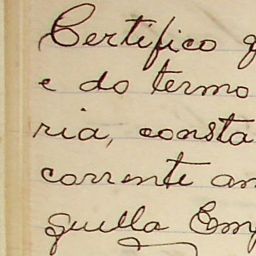 Certifico q
e do termo
ria, consta
corrente an
quella Emp